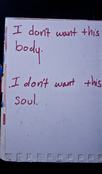 I don't want this
body.
I don't want this
soul.